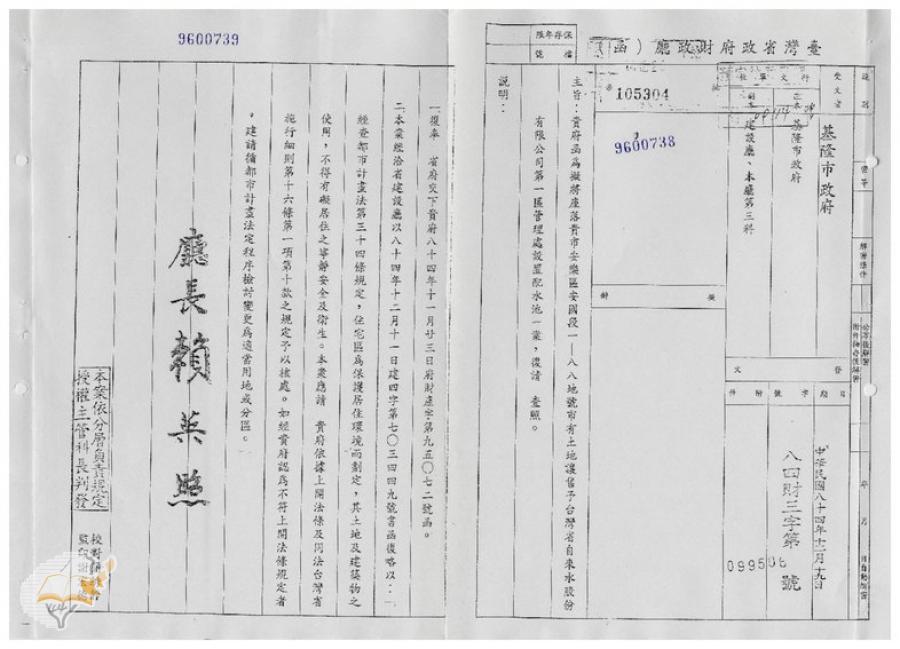 臺灣省政府財政廳（函）
保存年限
檔號
105304
9600738
速別
密等
解密條件
受文者
基隆市政府
行文單位
正本
基隆市政府
副本
建設廳、本廳第三科
擬辦
發文
日期
字號
附件
中華民國八十四年十二月十九日
八四財三字第
號
主旨：貴府函為擬將座落貴市安樂區安國段一—八八地號市有土地讓售予台灣省自來水股份
有限公司第一區管理處設置配水池一案，復請　查照。
說明：
9600739
一、復奉　省府交下貴府八十四年十一月廿三日府財產字第九五〇七二號函。
二、本案經洽省建設廳以八十四年十二月十一日建四字第七〇三四四九號書函復略以：「
經查都市計畫法第三十四條規定，住宅區為保護居住環境而劃定，其土地及建築物之
使用，不得有礙居住之寧靜安全及衛生。本案應請　貴府依據上開法條及同法台灣省
施行細則第十六條第一項第十款之規定予以核處。如經貴府認為不符上開法條規定者
，建請循都市計畫法定程序檢討變更為適當用地或分區。
廳長賴英照
本案依分層負責規定
授權主管科長判發
校對
監印